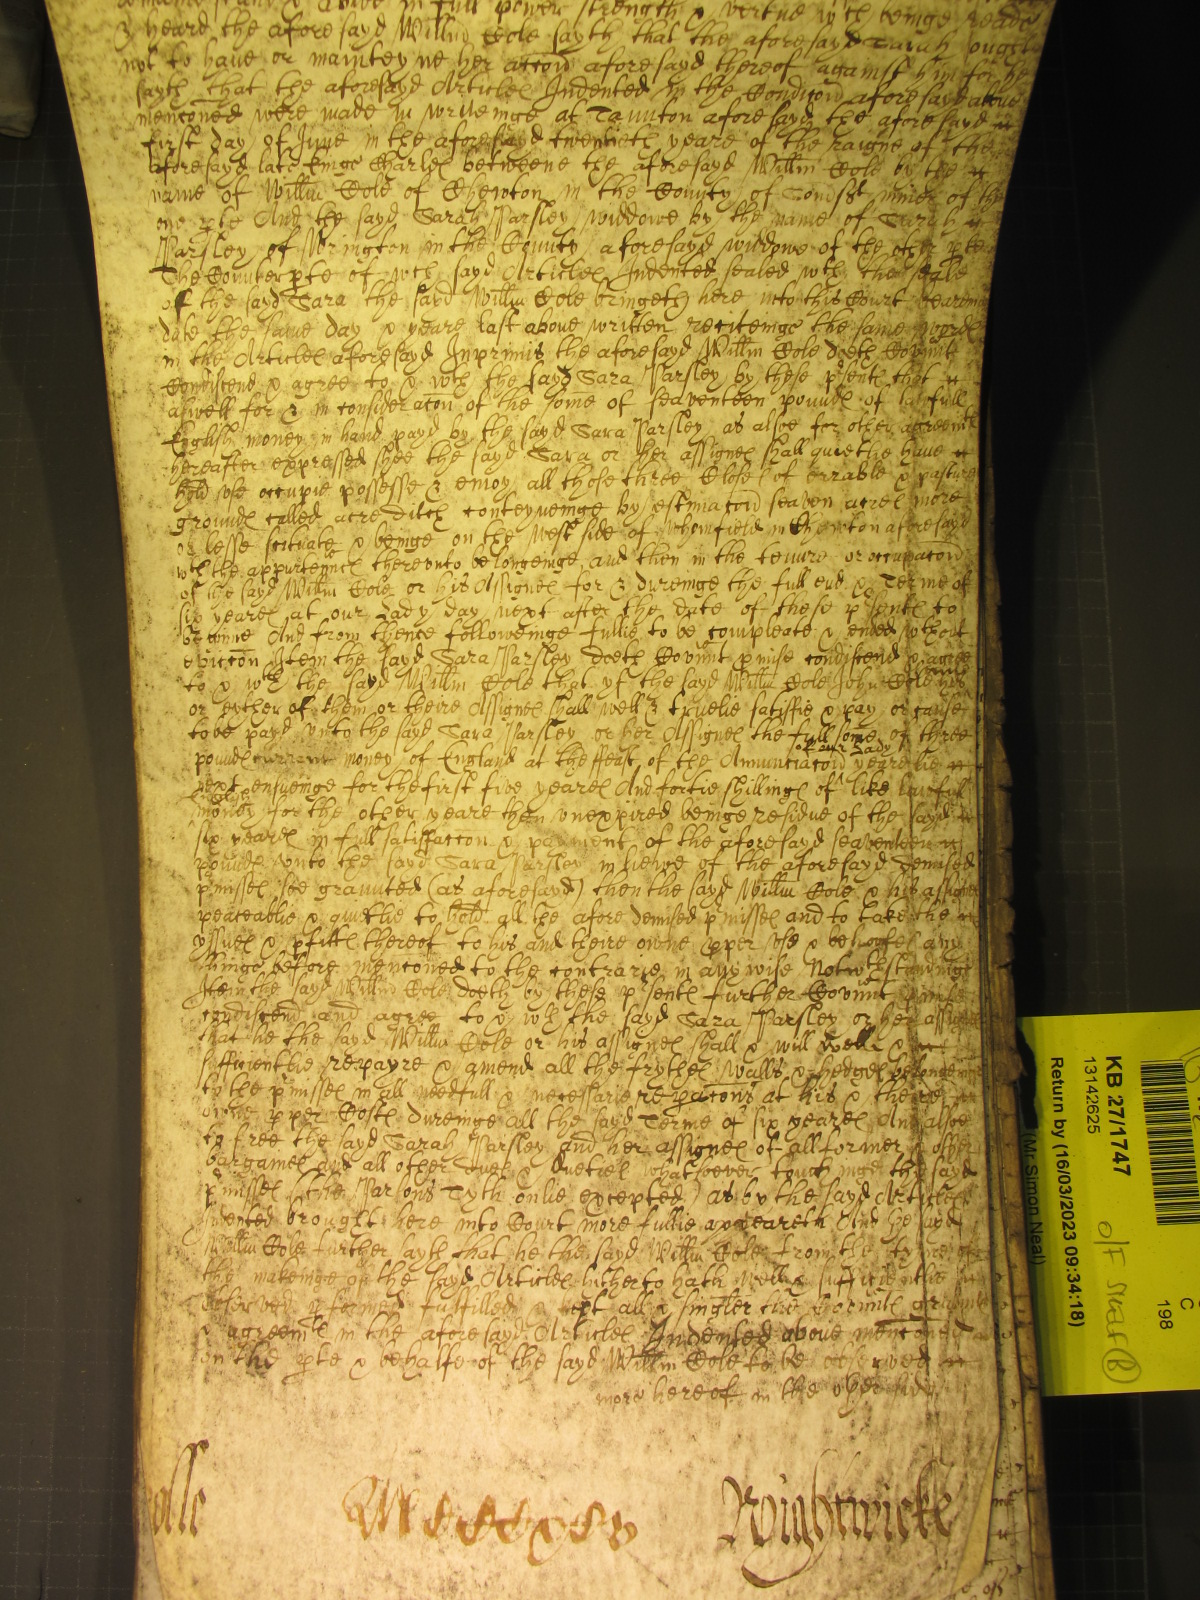 in full power strength & vertue wch beinge reade
& heard the aforesayd Willm Cole sayth that the aforesayd Sarah ought
not to have or mainteyne her accon aforesayd thereof against him for he
sayth that the aforesayd Articles Indented in the Condicon aforesayd above
menconed were made in writeinge at Taunton aforesayd the aforesayd
first day of June in the aforesayd twentieth yeare of the raigne of the
aforesayd late Kinge Charles betweene the aforesayd Willm Cole by the
name of Willm Cole of Chewton in the County of Somst of the
one pte And the sayd Sarah Parsley widdowe by the name of Sarah
Parsley of Wrington in the County aforesayd widdowe of the other pte
The Counterpte of wch sayd Articles Indented sealed wth the seale
of the sayd Sara the sayd Willm Cole bringeth here into this Court beareinge
date the same day & yeare last above written reciteinge the same words
in the Articles aforesayd Inprimis the aforesayd Willm Cole doeth Covnt
Condiscend & agree to & wth the sayd Sara Parsley by these psents that
aswell for & in consideracon of the some of seaventeen pounds of lawfull
English money in hand payd by the sayd Sara Parsley as alsoe for other agreemts
hereafter expressed shee the sayd Sara or her assignes shall quietlie have
hold use occupie possesse & enioy all those three Closes of errable & pasture
grounds called acre ditch conteyneinge by estimacon seaven acres more
or lesse scituate & beinge on the West side of in Chewton aforesayd
wth the appurtenncs thereunto belongeinge and then in the tenure or occupacon
of the sayd Willm Cole or his Assignes for & dureinge the full end & Terme of
six yeares at our Lady day next after the date of these psents to
beginne And from thence followeinge fullie to be compleate & ended without
eviccon Item the sayd Sara Parsley doeth Covnt pmise condiscend & agree
to & wth the sayd Willm Cole that yf the sayd Willm Cole John Cole his
or eyther of them or theire Assignes shall well & truelie satisfie & pay or cause
to be payd unto the sayd Sara Parsley or her Assignes the full some of three
of our Lady
pounds currant money of England at the feast of the Annunciacon yearelie
next ensueinge for the first five yeares And fortie shillings of like lawfull
money for the other yeare then unexpired beinge residue of the sayd
six yeares in full satisfaccon & payment of the aforesayd seaventeen
pounds unto the sayd Sara Parsley in liewe of the aforesayd demised
pmisses soe graunted (as aforesayd) then the sayd Willm Cole & his assignes
peaceablie & quietlie to hold all the afore demised pmisses and to take the
yssues & pfitts thereof to his and theire owne pper use & behoofes any
thinge before menconed to the contrarie in anywise Notwthstandinge
Item the sayd Willm Cole doeth by these psents further Covnt pmise
condiscend and agree to & wth the sayd Sara Parsley or her assignes
that he the sayd Willm Cole or his assignes shall & will well &
sufficientlie repayre & amend all the frythes walls & hedges belongeinge
to the pmisses in all needfull & necessarie repacons at his & theire
owne pper Costs dureinge all the sayd Terme of six yeares And alsoe
to free the sayd Sarah Parsley and her assignes of all former & other
bargaines and all other dues & dueties whatsoever touchinge the sayd
pmisses (the Parsons Tyth onlie excepted) as by the sayd Articles
Indented brought here into Court more fullie appeareth And he sayd
Willm Cole further sayth that he the sayd Willm Cole from the tyme of
the makeinge of the sayd Articles hitherto hath well & sufficientlie
observed pformed fulfilled & kept all & singler the Covnts graunts
& agreemts in the aforesayd Articles Indented above menconed
on the pte & behalfe of the sayd Willm Cole to be observed
more hereof in the other side
olle
Rightwicke
KB 27/1747
13142625
Return by (16/03/2023 09:34:18)
(Mr Simon Neal)
C
198